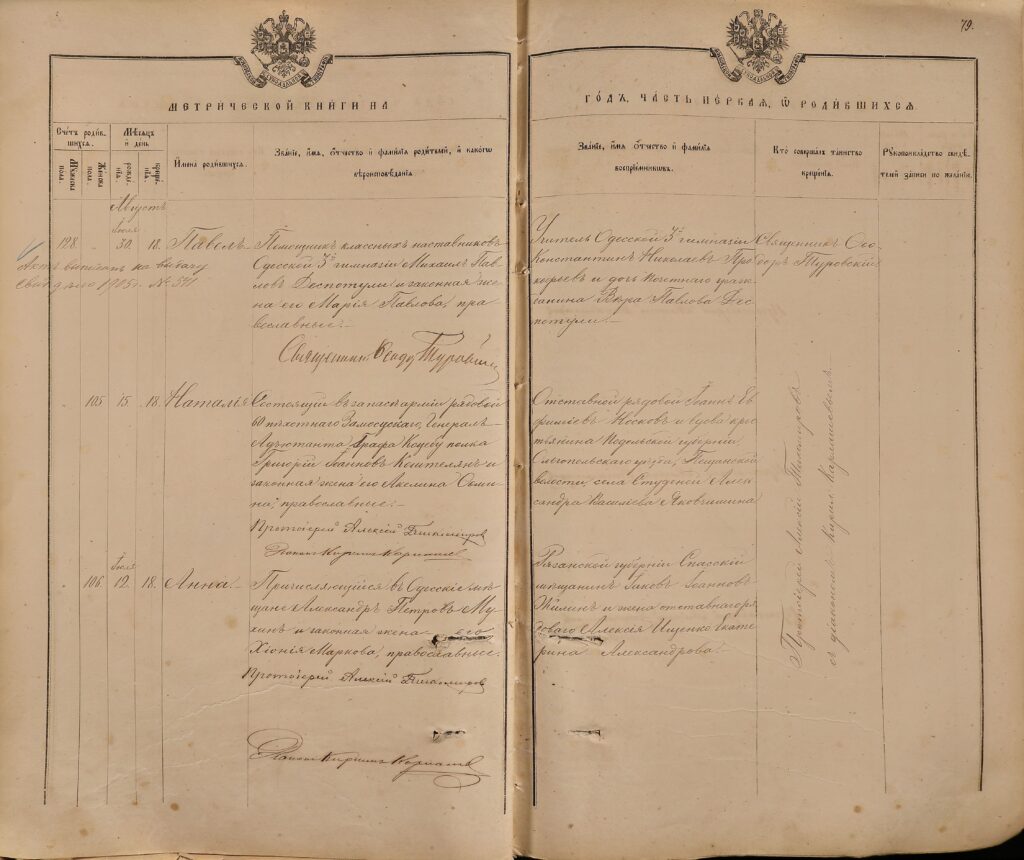 79.
МЕТРИЧЕСКОЙ КНИГИ НА
ГОДЪ, ЧАСТЬ ПЕРВАЯ, Ѡ РОДИВШИХСЯ
Счетъ родив-
шихся.
Мужеска
пола.
Женска
пола.
Мѣсяцъ
и день
рожде-
нія.
креще-
нія.
Имена родившихся.
Званіе, имя, отчество и фамилія родителей, и какого
вѣроисповѣданія
Званіе, имя, отчество и фамилія
воспріемниковъ.
Кто совершалъ таинство
крещенія.
Рукоприкладство свидѣ-
телей записи по желанію.
Августъ
Іюля
128. 30. 18. Павелъ
Помощникъ классныхъ наставниковъ
Одесской 3й гимназіи Михаилъ Пав-
ловъ Деспотули и законная же-
на его Марія Павлова, пра-
вославные.
Священникъ Ѳеодоръ Туровскій
№ 541
Учитель Одесской 3й гимназіи
Константинъ Николаевъ Про-
кофьевъ и дочь почетнаго граж-
данина Вѣра Павлова Дес-
потули.
Священникъ Ѳео-
доръ Туровскій
105 15. 18. Наталія
Состоящій въ запасѣ арміи рядовой
60 пѣхотнаго Замосцскаго, Генералъ-
Адъютанта Графа Коцебу полка
Григорій Іоанновъ Коштелянъ и
законная жена его Акелина
православные.
Протоіерей Алексій
Діаконъ Кириллъ
Отставной рядовой Іоаннъ Еѵ-
фиміевъ Носковъ и вдова крес-
тьянина Подольской губерніи,
Ольгопольскаго уѣзда, Пещанской
волости, села Студеной Алек-
сандра Василіева Яковчишина
Іюля
106. 12. 18. Анна
Причисляющійся въ Одесскіе мѣ-
щане Александръ Петровъ Му-
ханъ и законная жена его
Хіонія Маркова, православные.
Протоіерей Алексій
Діаконъ Кириллъ
Рязанской губерніи Спасскій
мѣщанинъ Іаковъ Іоанновъ
Жилинъ и жена отставнаго ря-
доваго Алексія Ищенко Екате-
рина Александрова.
Протоіерей Алексій
съ діакономъ Кирил.